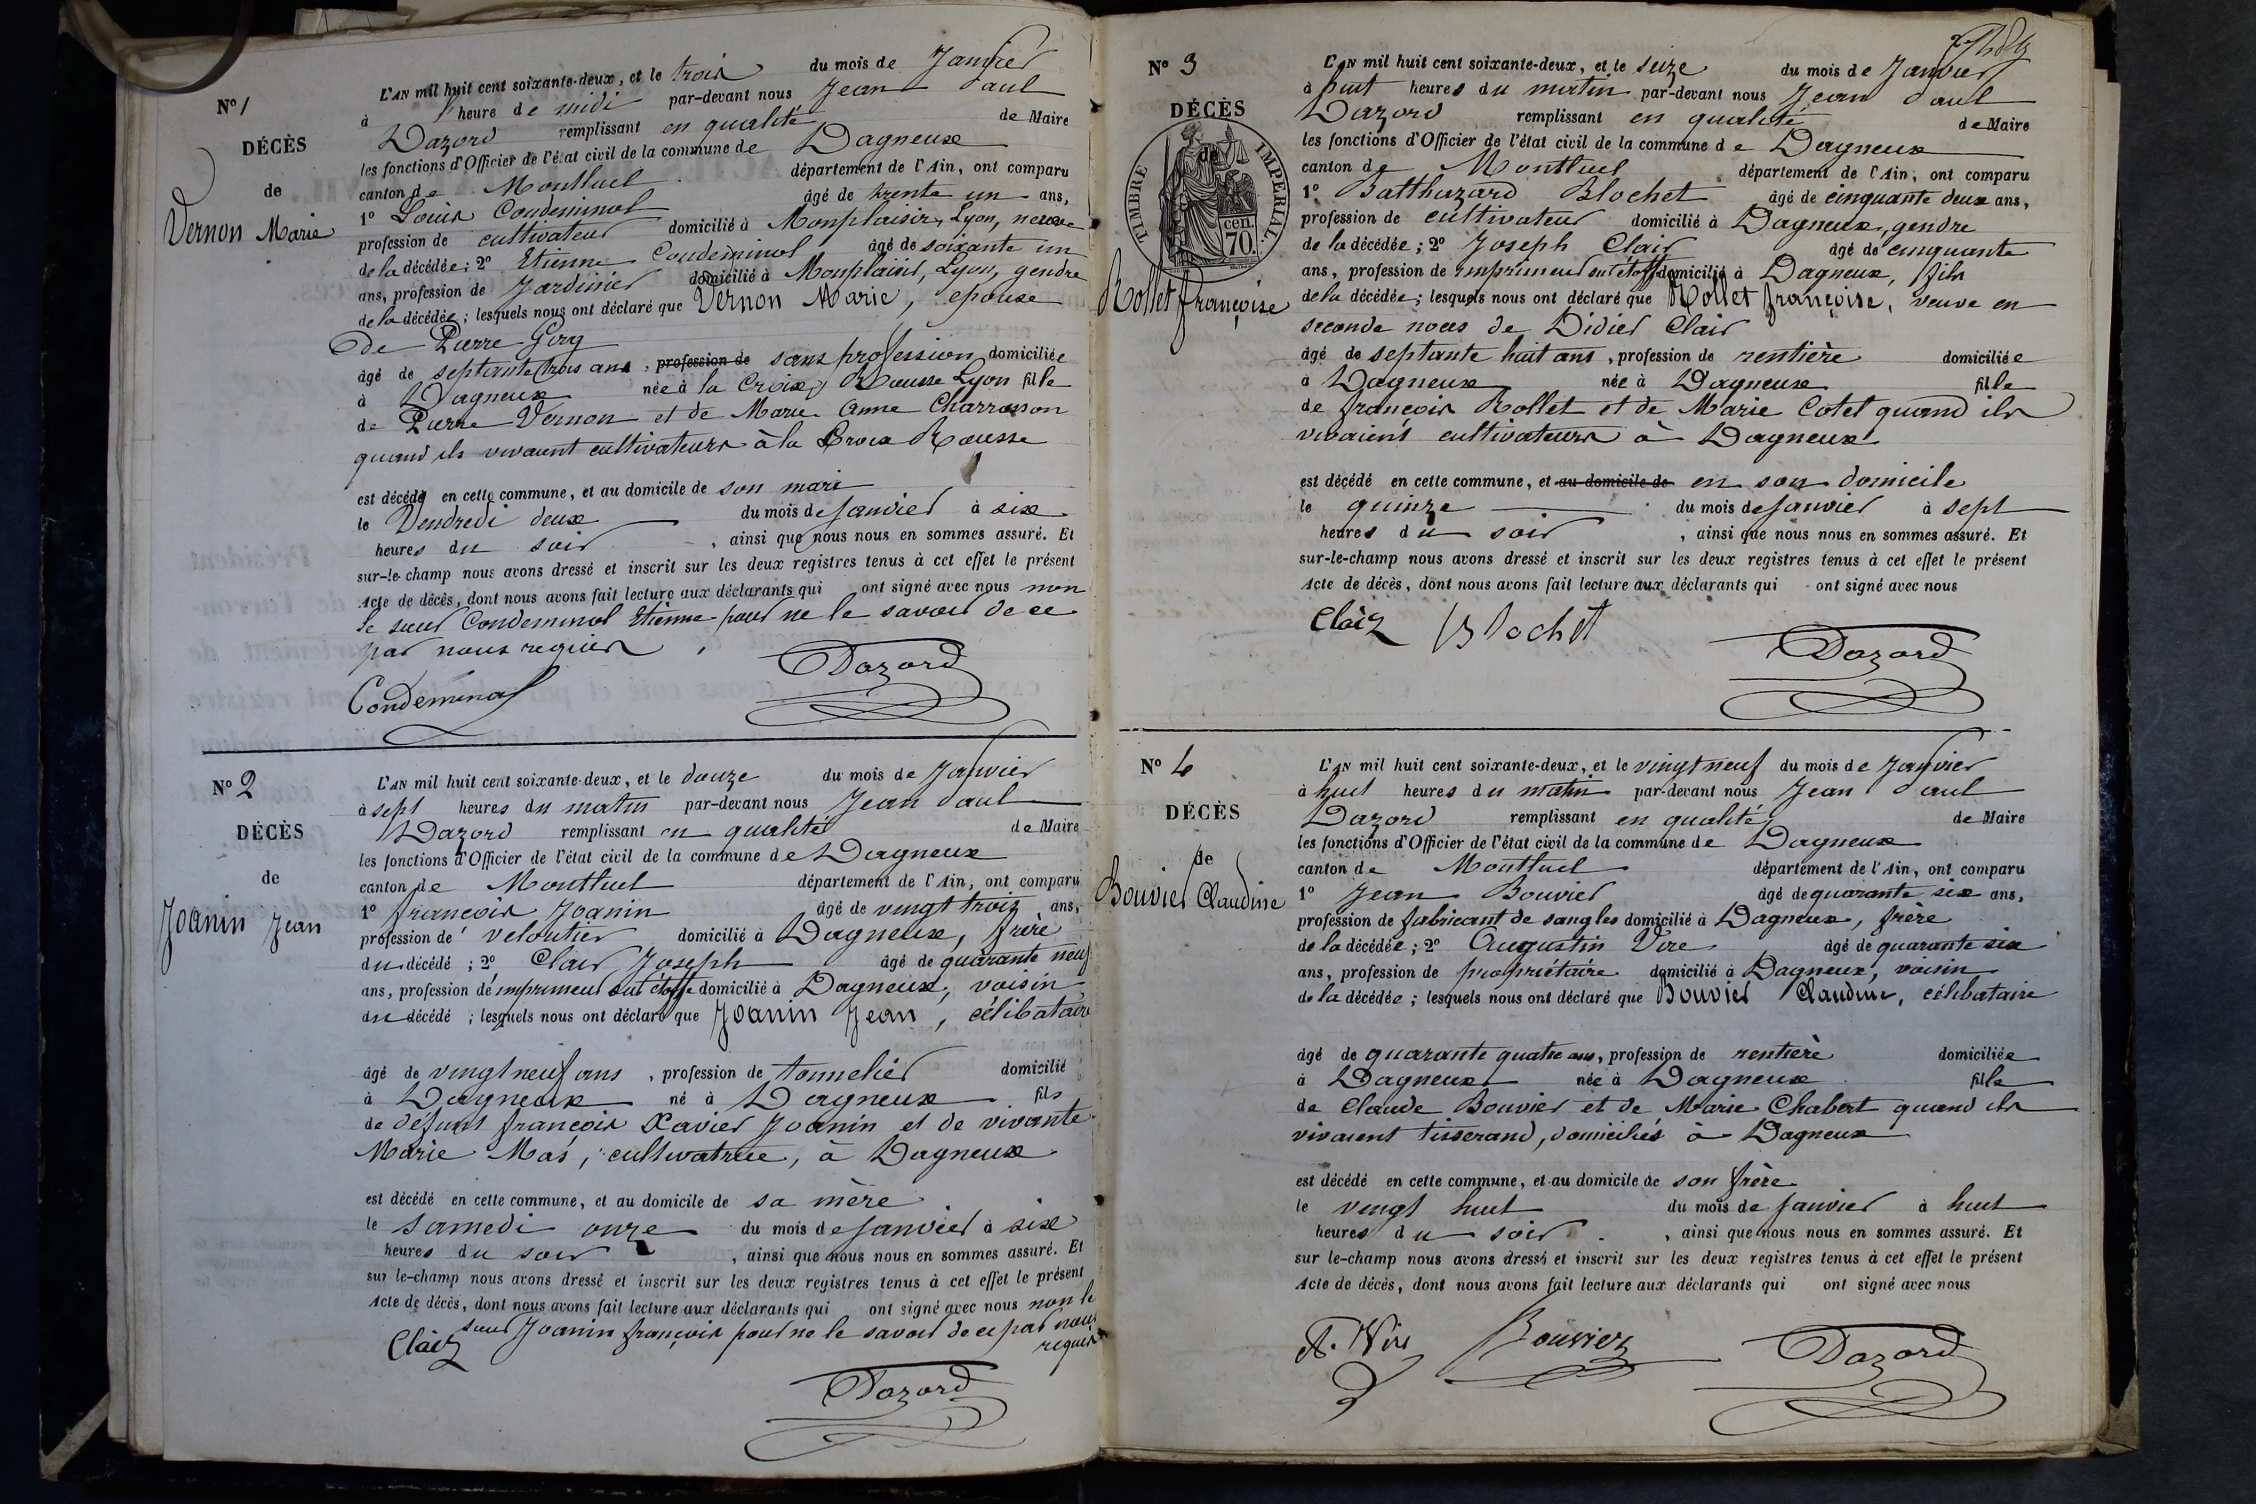 N° 1
DÉCÈS
de
Vernon Marie
L'AN mil huit cent soixante-deux, et le trois du mois de Janvier
à heure de midi par-devant nous Jean Paul
Dazord remplissant en qualité de Maire
les fonctions d'Officier de l'état civil de la commune de Dagneux
canton de Montluel département de l'Ain, ont comparu
1° Louis Condeminal âgé de trente un ans,
profession de cultivateur domicilié à Monplaisir, Lyon, neveu
de la décédée; 2° Etienne Condeminal âgé de soixante un
ans, profession de Jardinier domicilié à Monplaisir, Lyon, gendre
de la décédée; lesquels nous ont déclaré que Vernon Marie, épouse
de Pierre
âgé de septante trois ans, profession de sans profession domiciliée
à Dagneux née à la Croix Rousse Lyon fille
de Pierre Vernon et de Marie Anne Charrasson
quand ils vivaient cultivateurs à la Croix Rousse
est décédé en cette commune, et au domicile de son mari
le Vendredi deux du mois de Janvier à six
heures du soir, ainsi que nous nous en sommes assuré. Et
sur-le-champ nous avons dressé et inscrit sur les deux registres tenus à cet effet le présent
Acte de décès, dont nous avons fait lecture aux déclarants qui ont signé avec nous non
le sieur Condeminal Etienne pour ne le savoir de ce
par nous requis
Condeminal Dazord
N° 2
DÉCÈS
de
Joanin Jean
L'AN mil huit cent soixante-deux, et le douze du mois de Janvier
à sept heures du matin par-devant nous Jean Paul
Dazord remplissant en qualité de Maire
les fonctions d'Officier de l'état civil de la commune de Dagneux
canton de Montluel département de l'Ain, ont comparu
1° françois Joanin âgé de vingt trois ans,
profession de veloutier domicilié à Dagneux, frère
du décédé; 2° Clair Joseph âgé de quarante neuf
ans, profession de imprimeur sur étoffe domicilié à Dagneux, voisin
du décédé; lesquels nous ont déclaré que Joanin Jean, célibataire
âgé de vingt neuf ans, profession de tonnelier domicilié
à Dagneux né à Dagneux fils
de défunt françois Xavier Joanin et de vivante
Marie Mas, cultivatrice, à Dagneux
est décédé en cette commune, et au domicile de sa mère
le samedi onze du mois de Janvier à six
heures du soir, ainsi que nous nous en sommes assuré. Et
sur le-champ nous avons dressé et inscrit sur les deux registres tenus à cet effet le présent
Acte de décès, dont nous avons fait lecture aux déclarants qui ont signé avec nous non le
sieur Joanin françois pour ne le savoir de ce par nous
requis
Clair
Dazord
N° 3
DÉCÈS
de
TIMBRE IMPÉRIAL.
70. cen.
Rollet françoise
L'AN mil huit cent soixante-deux, et le seize du mois de Janvier
à huit heures du matin par-devant nous Jean Paul
Dazord remplissant en qualité de Maire
les fonctions d'Officier de l'état civil de la commune de Dagneux
canton de Montluel département de l'Ain, ont comparu
1° Balthazard Blochet âgé de cinquante deux ans,
profession de cultivateur domicilié à Dagneux, gendre
de la décédée; 2° Joseph Clair âgé de cinquante
ans, profession de imprimeur sur étoffe domicilié à Dagneux, fils
de la décédée; lesquels nous ont déclaré que Rollet françoise, veuve en
seconde noces de Didier Clair
âgé de septante huit ans, profession de rentière domiciliée
à Dagneux née à Dagneux fille
de françois Rollet et de Marie Cotel quand ils
vivaient cultivateurs à Dagneux
est décédé en cette commune, et au domicile de en son domicile
le quinze du mois de Janvier à sept
heures du soir, ainsi que nous nous en sommes assuré. Et
sur-le-champ nous avons dressé et inscrit sur les deux registres tenus à cet effet le présent
Acte de décès, dont nous avons fait lecture aux déclarants qui ont signé avec nous
Clair Blochet
Dazord
N° 4
DÉCÈS
de
Bouvier Claudine
L'AN mil huit cent soixante-deux, et le vingt neuf du mois de Janvier
à huit heures du matin par-devant nous Jean Paul
Dazord remplissant en qualité de Maire
les fonctions d'Officier de l'état civil de la commune de Dagneux
canton de Montluel département de l'Ain, ont comparu
1° Jean Bouvier âgé de quarante six ans,
profession de fabricant de sangles domicilié à Dagneux, frère
de la décédée; 2° Augustin Vire âgé de quarante six
ans, profession de propriétaire domicilié à Dagneux, voisin
de la décédée; lesquels nous ont déclaré que Bouvier Claudine, célibataire
âgé de quarante quatre ans, profession de rentière domiciliée
à Dagneux née à Dagneux fille
de Claude Bouvier et de Marie Chabert quand ils
vivaient tisserand, domiciliés à Dagneux
est décédé en cette commune, et au domicile de son frère
le vingt huit du mois de Janvier à huit
heures du soir, ainsi que nous nous en sommes assuré. Et
sur le-champ nous avons dressé et inscrit sur les deux registres tenus à cet effet le présent
Acte de décès, dont nous avons fait lecture aux déclarants qui ont signé avec nous
A. Vire Bouvier Dazord